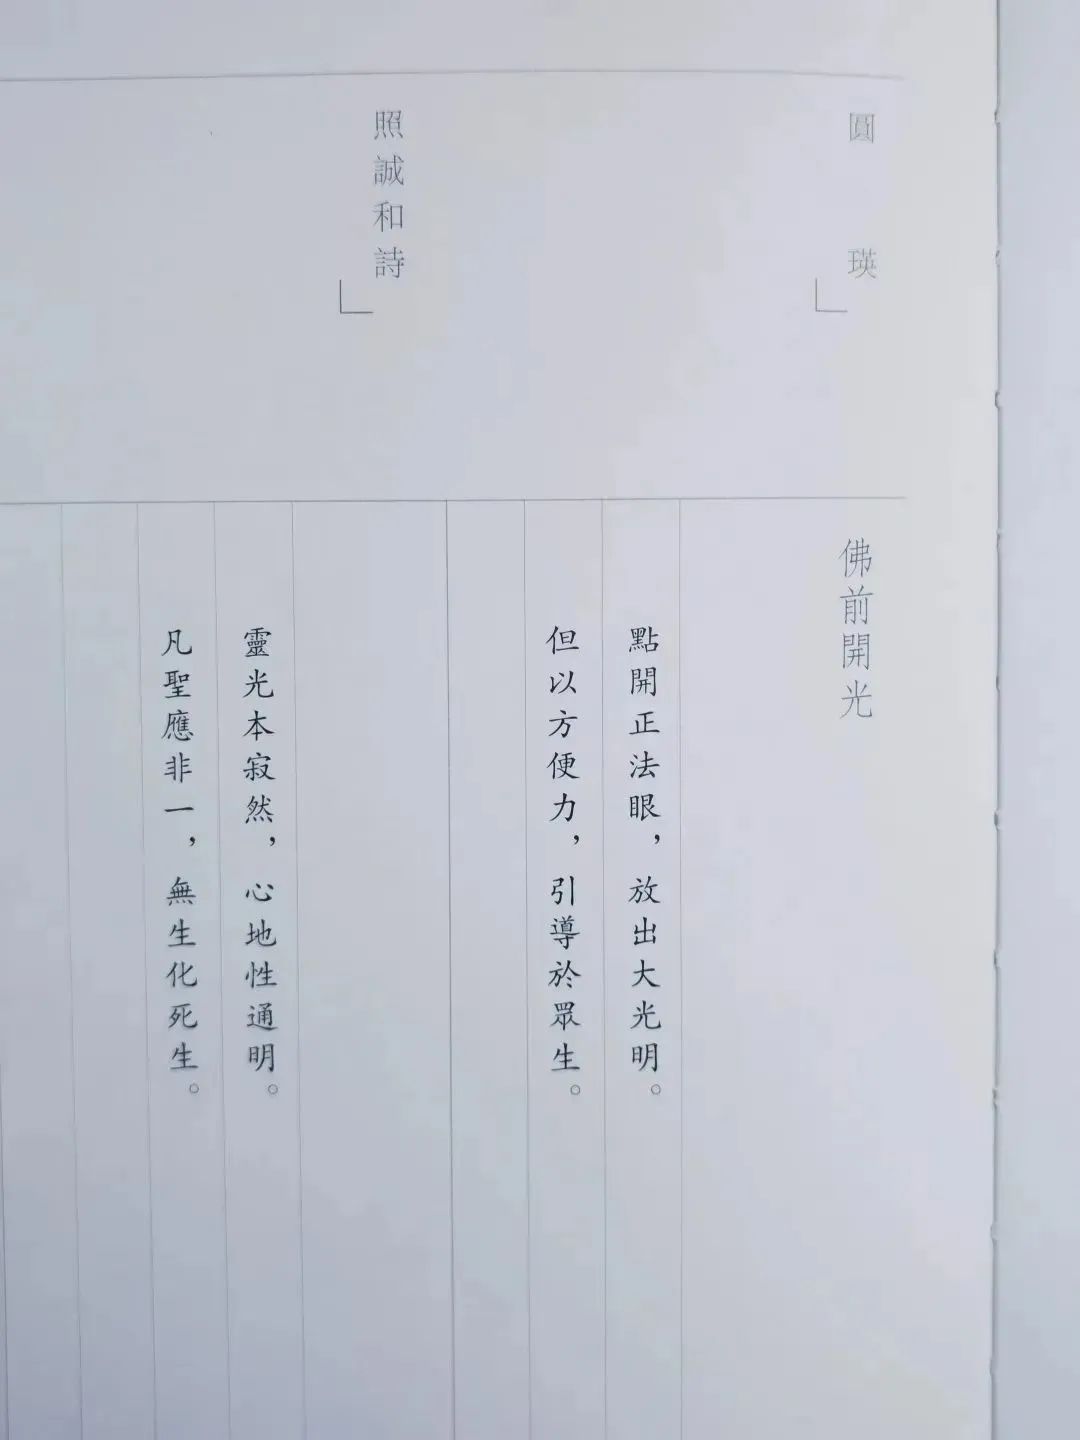 圓瑛
佛前開光
點開正法眼，放出大光明。
但以方便力，引導於眾生。
照誠和詩
靈光本寂然，心地性通明。
凡聖應非一，無生化死生。